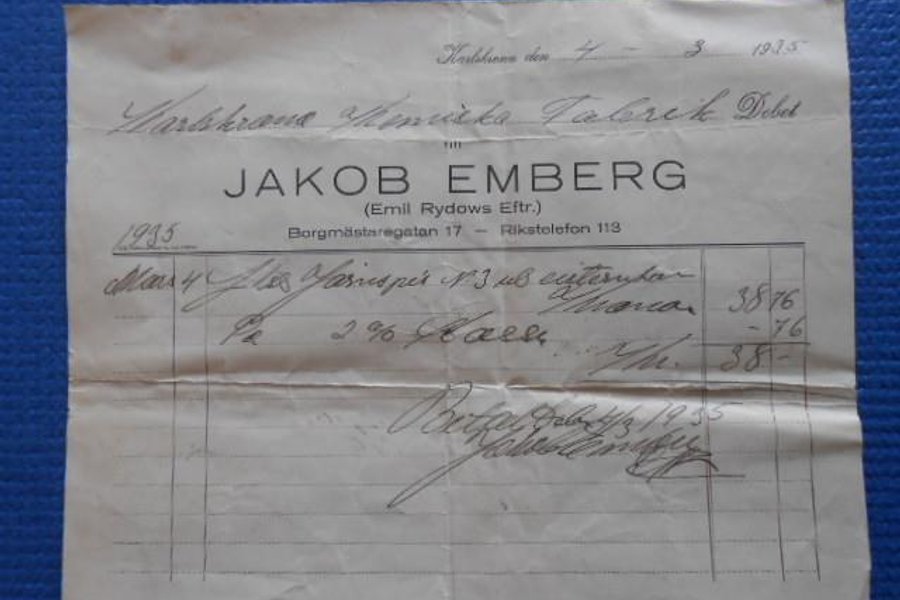 Karlskrona den 4 - 3 1935
Karlskrona Kemiska Fabrik Debet
Till
JAKOB EMBERG
(Emil Rydows Eftr.)
Borgmästaregatan 17 — Rikstelefon 113
1935
Mars 4 1 st Järnspis N:3 38 76
2 % Kassa - 76
Kr. 38 -
Betalt 4/3 1935
Jakob Emberg